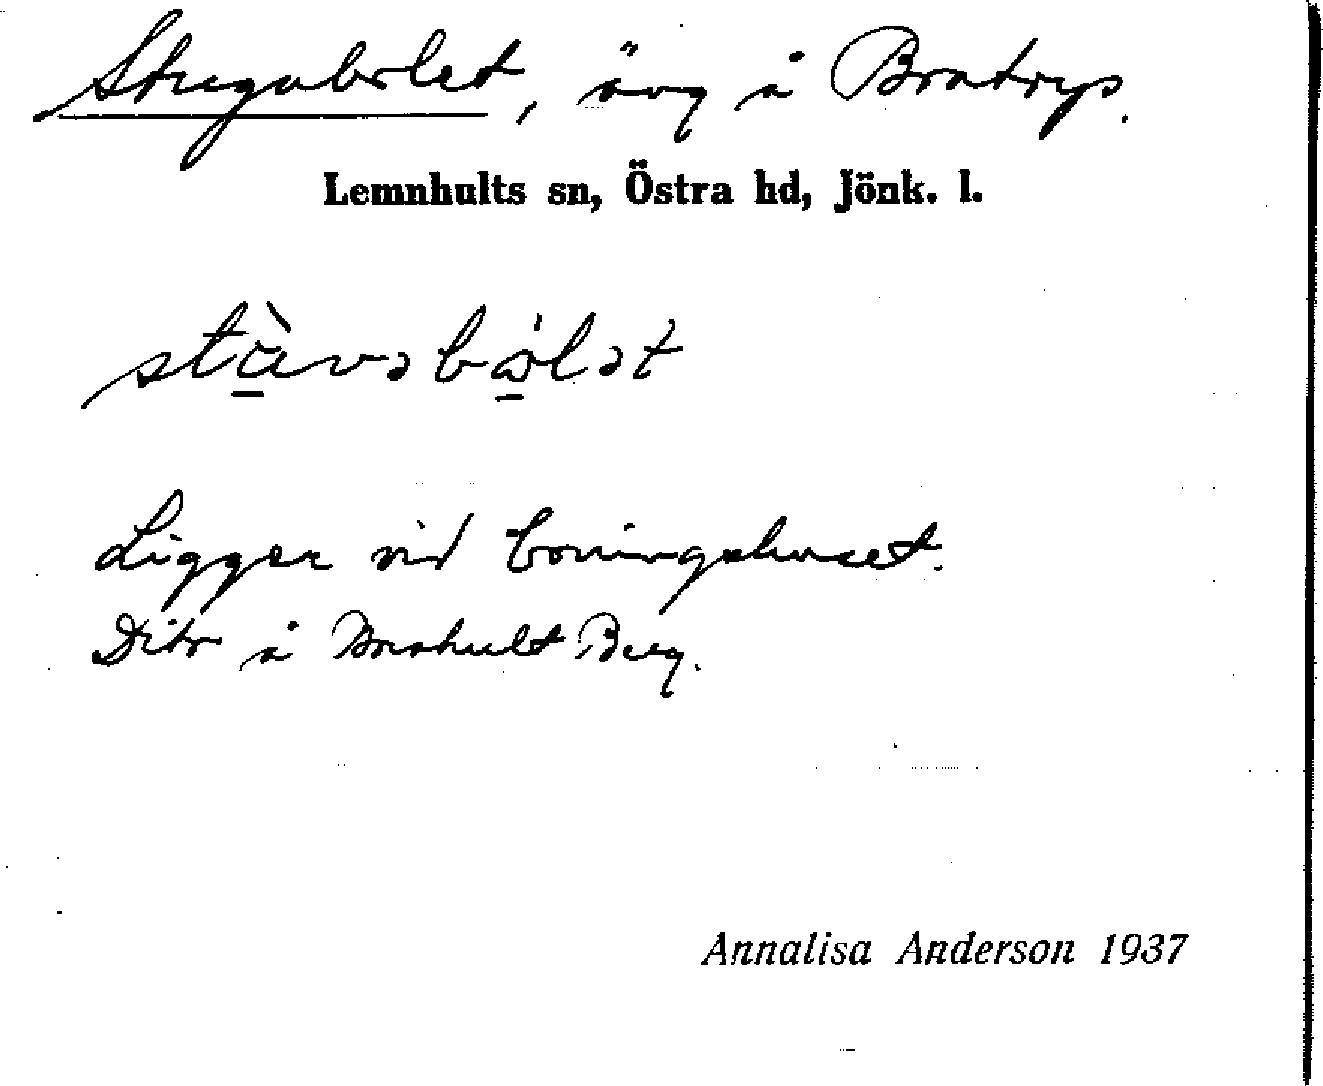 Stugubolet, äng å Bratryp.
Lemnhults sn, Östra hd, Jönk. l.
Ligger vid boningshuset.
Dito å Brahult Berg.
Annalisa Anderson 1937